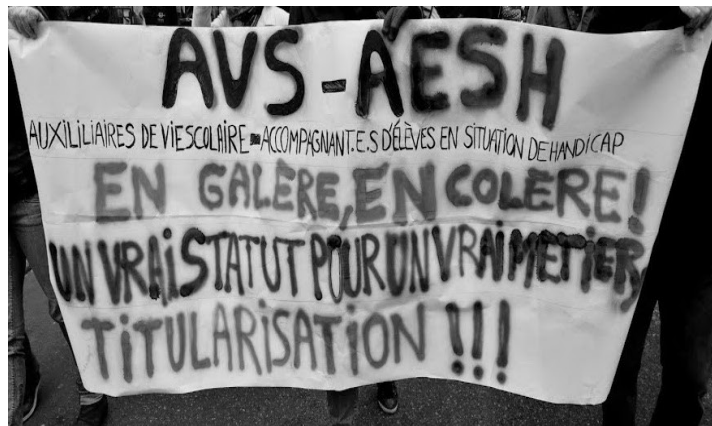 AVS - AESH
AUXILILIAIRES DE VIE SCOLAIRE - ACCOMPAGNANT.E.S D'ÉLÈVES EN SITUATION DE HANDICAP
EN GALÈRE, EN COLÈRE !
UN VRAI STATUT POUR UN VRAI METIER,
TITULARISATION !!!